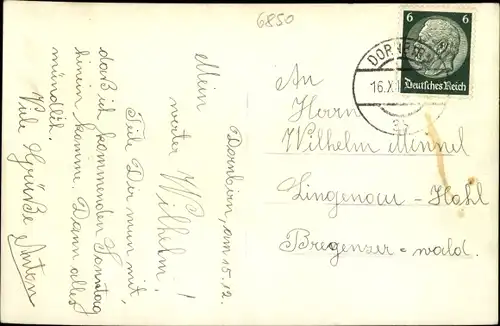 6850
Dornbirn, am 15.12.
Mein
werter Wilhelm!
Teile Dir nun mit,
daß ich kommenden Sonntag
hinein komme. Dann alles
mündlich.
Viele Grüße Anton
6 6
Deutsches Reich
16.X
An
Herrn
Wilhelm
Lingenau-
Bregenzer-wald.